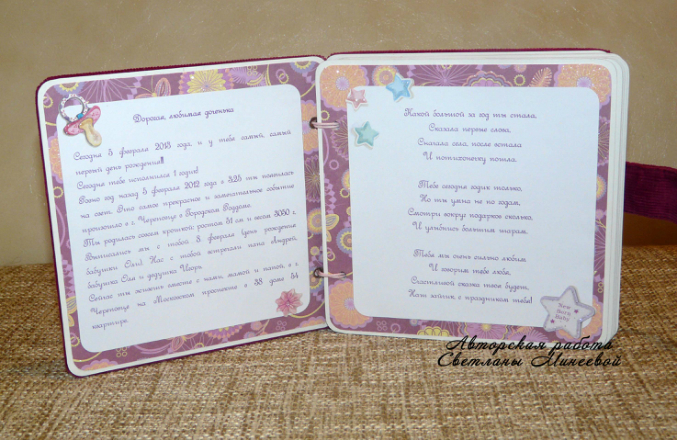 Дорогая любимая доченька
Сегодня 5 февраля 2013 года и у тебя самый, самый
первый день рождения!!!
Сегодня тебе исполнился 1 годик!
Ровно год назад 5 февраля 2012 года в 3.25 ты появилась
на свет. Это самое прекрасное и замечательное событие
произошло в г. Череповце в Городском Роддоме.
Ты родилась совсем крошкой ростом 51 см и весом 3030 г.
Выписались мы с тобой 9 февраля (день рождения
бабушки Оли). Нас с тобой встречали папа Андрей,
бабушка Оля и дедушка Игорь.
Сейчас ты живешь вместе с нами, мамой и папой, в г.
Череповце на Московском проспекте в 38 доме 54
квартире.
Какой большой за год ты стала,
Сказала первые слова,
Сначала села, после встала
И потихонечку пошла.
Тебе сегодня годик только,
Но ты умна не по годам,
Смотри вокруг подарков сколько,
И улыбнись большим шарам.
Тебя мы очень сильно любим
И говорим тебе любя,
Счастливой сказка твоя будет,
Наш зайчик, с праздником тебя!
New
Born
Baby
Авторская работа
Светланы Минеевой